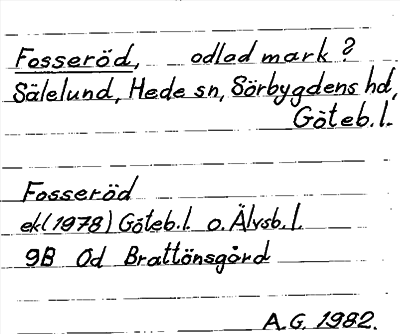 Fosseröd, odlad mark?
Sälelund, Hede sn, Sörbygdens hd,
Göteb.l.
Fosseröd
ek(1978) Göteb.l. o. Älvsb.l.
9B 0d Brattönsgård
A.G. 1982.